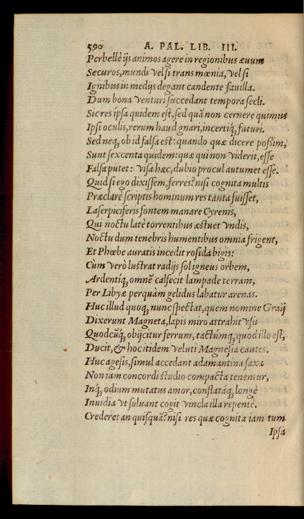 590 A. PAL. LIB. III.
Perbellè ijs animos agere in regionibus æuum
Securos, mundi vel si trans mœnia, vel si
Ignibus in medijs degant candente fauilla.
Dum bona venturi succedant tempora secli.
Sic res ipsa quidem est, sed quā non cernere quimus
Ipsi oculis, rerum haud gnari, incertiq́; futuri.
Sed neq; ob id falsa est: quando quæ dicere possim,
Sunt sexcenta quidem: quæ qui non viderit, esse
Falsa putet: visa hæc, dubio procul autumet esse.
Quid si ego dixissem, ferres? nisi cognita multis
Præclarè scriptis hominum res tanta fuisset,
Laserpiciferis fontem manare Cyrenis,
Qui noctu latè torrentibus æstuet vndis,
Noctu dum tenebris humentibus omnia frigent,
Et Phœbe auratis incedit rosida bigis:
Cùm verò lustrat radijs soligneus orbem,
Ardentiq́; omnē calfecit lampade terram,
Per Libyæ perquàm gelidus labatur arenas.
Huc illud quoq; nunc spectat, quem nomine Graij
Dixerunt Magneta, lapis miro attrahit vsu
Quodcūq; obijcitur ferrum, tactumq́; quod illo est,
Ducit, & hoc itidem veluti Magnesia cautes.
Huc agesis, simul accedant adamantina saxa
Non tam concordi studio compacta tenentur,
Inq́; odium mutatus amor, conflataq́; longè
Inuidia vt soluant cogit vincla illa repentè.
Crederet an quisquā? nisi res quæ cognita iam tum
Ipsa